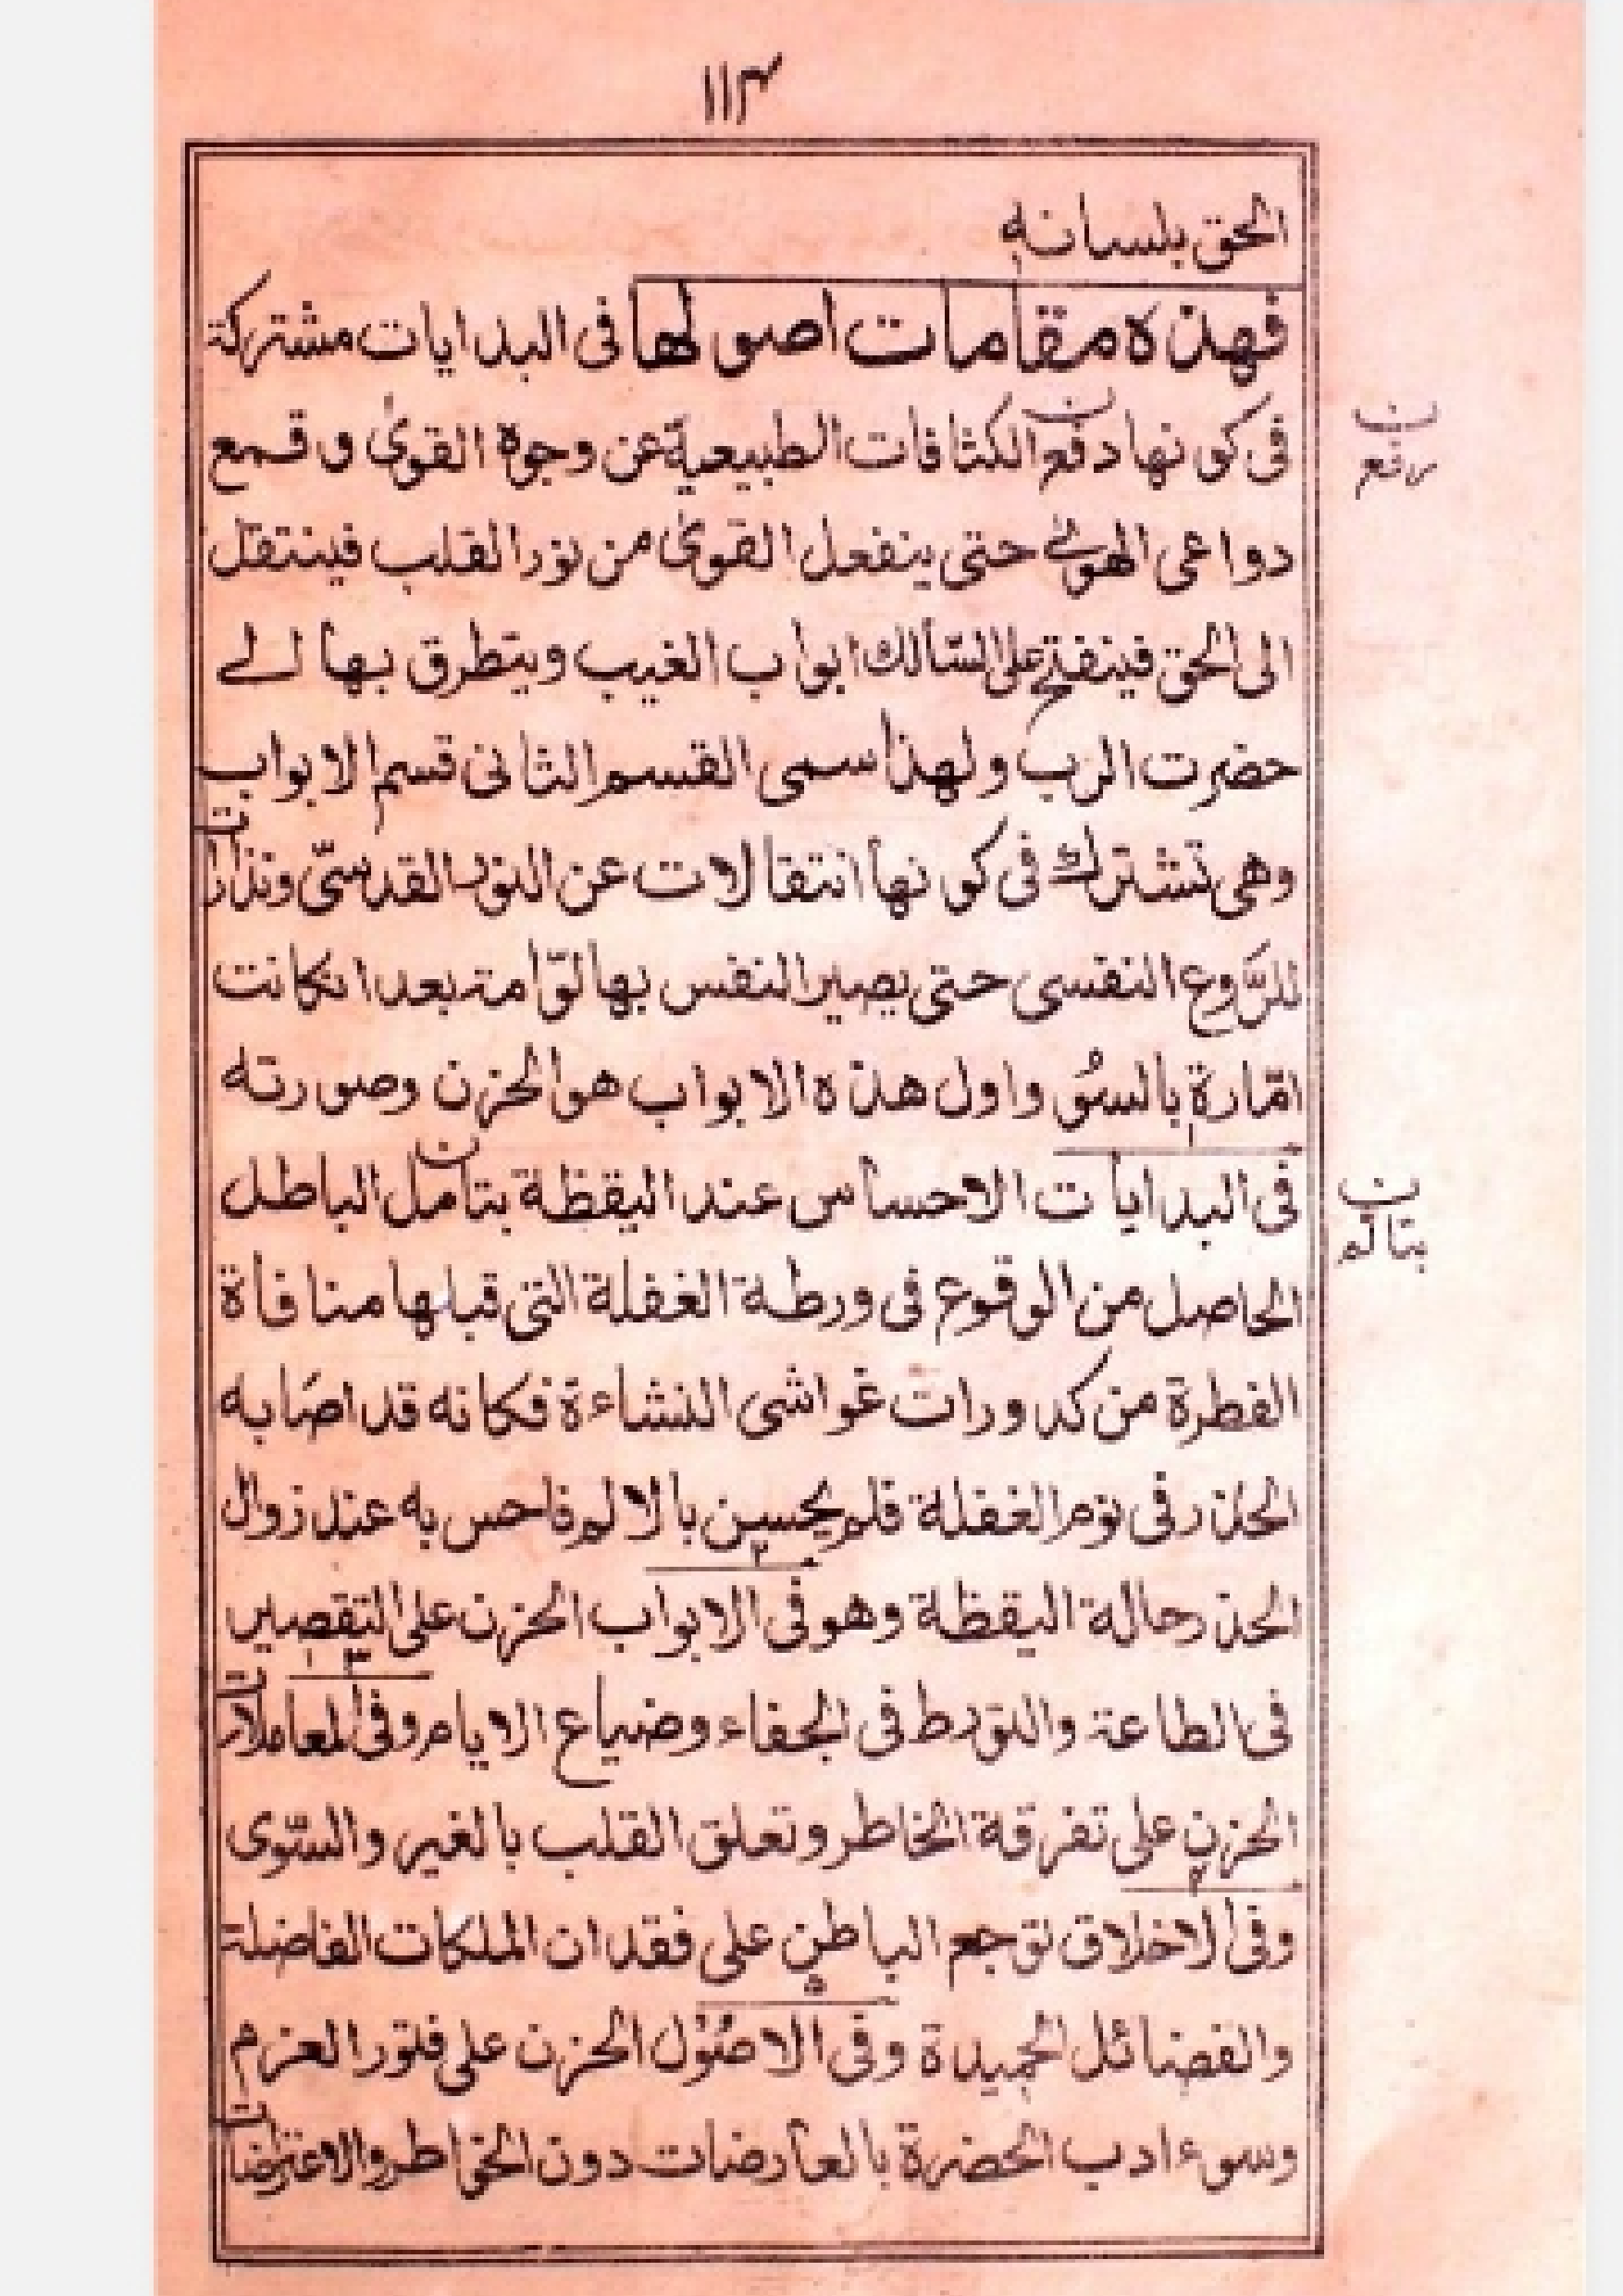 ١١٣
الحق بلسانه
فهذه مقامات اصولها فى البدايات مشتركة
فى كونها دفع الكثافات الطبيعية عن وجوه القوىٰ و قمع
ن
رفع
دواعى الهوىٰ حتى ينفعل القوىٰ من نور القلب فينتقل
الى الحق فينفتح على السّالك ابواب الغيب ويتطرق بها الے
حضرت الرب ولهذا سمى القسم الثانى قسم الابواب
وهى تشترك فى كونها انتقالات عن النور القدسىّ
للرَّوع النفسى حتى يصير النفس بها لوّامة بعد انكانت
امّارة بالسُو واول هذه الابواب هو الحزن وصورته
فى البدايات الاحساس عند اليقظة بتأمل الباطل
ن
بتالّم
الحاصل من الوقوع فى ورطة الغفلة التى قبلها منافاة
الفطرة من كدورات غواشى النشاءة فكانه قد اصَابه
الخذر فى نوم الغفلة فلم يحسن بالالم فاحس به عند زوال
الخذر حالة اليقظة وهو فى الابواب الحزن على التقصير
٢
فى الطاعة والتورط فى الجفاء وضياع الايام وفى المعاملات
٣
الحزن على تفرقة الخاطر وتعلق القلب بالغير والسّوى
وفى الاخلاق توجع الباطن على فقدان الملكات الفاضلة
٤
والفضائل الحميدة وفى الاصُوْل الحزن على فتور العزم
٥
وسوء ادب الحضرة بالعارضات دون الخواطر والاعتراضات